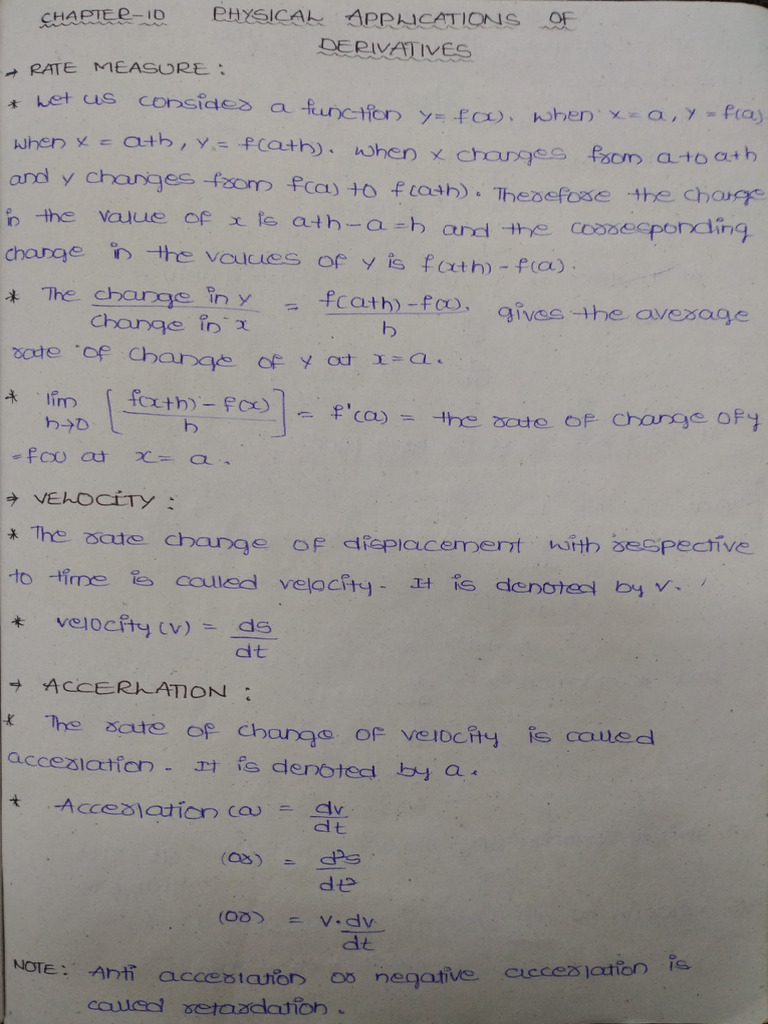 CHAPTER-10 PHYSICAL APPLICATIONS OF
DERIVATIVES
→ RATE MEASURE :
* Let us consider a function y= f(x). When x = a, y = f(a)
when x = a+h, y = f(a+h). when x changes from a to a+h
and y changes from f(a) to f(a+h). Therefore the change
in the value of x is a+h-a=h and the corresponding
change in the values of y is f(x+h)-f(a).
* The change in y / change in x = f(a+h)-f(x). / h gives the average
rate of change of y at x=a.
* lim h→0 [f(x+h)-f(x) / h] = f'(a) = the rate of change of y
=f(x) at x= a.
→ VELOCITY :
* The rate change of displacement with respective
to time is called velocity. It is denoted by v.
* velocity (v) = ds/dt
→ ACCERLATION :
* The rate of change of velocity is called
accerlation. It is denoted by a.
* Accerlation (a) = dv/dt
(or) = d²s/dt²
(or) = v.dv/dt
NOTE: Anti accerlation or negative accerlation is
called retardation.